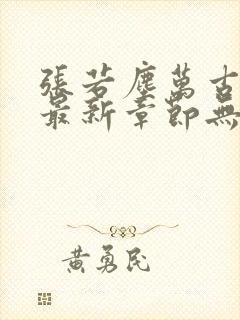 張若塵萬古
最新章節無
黃勇民